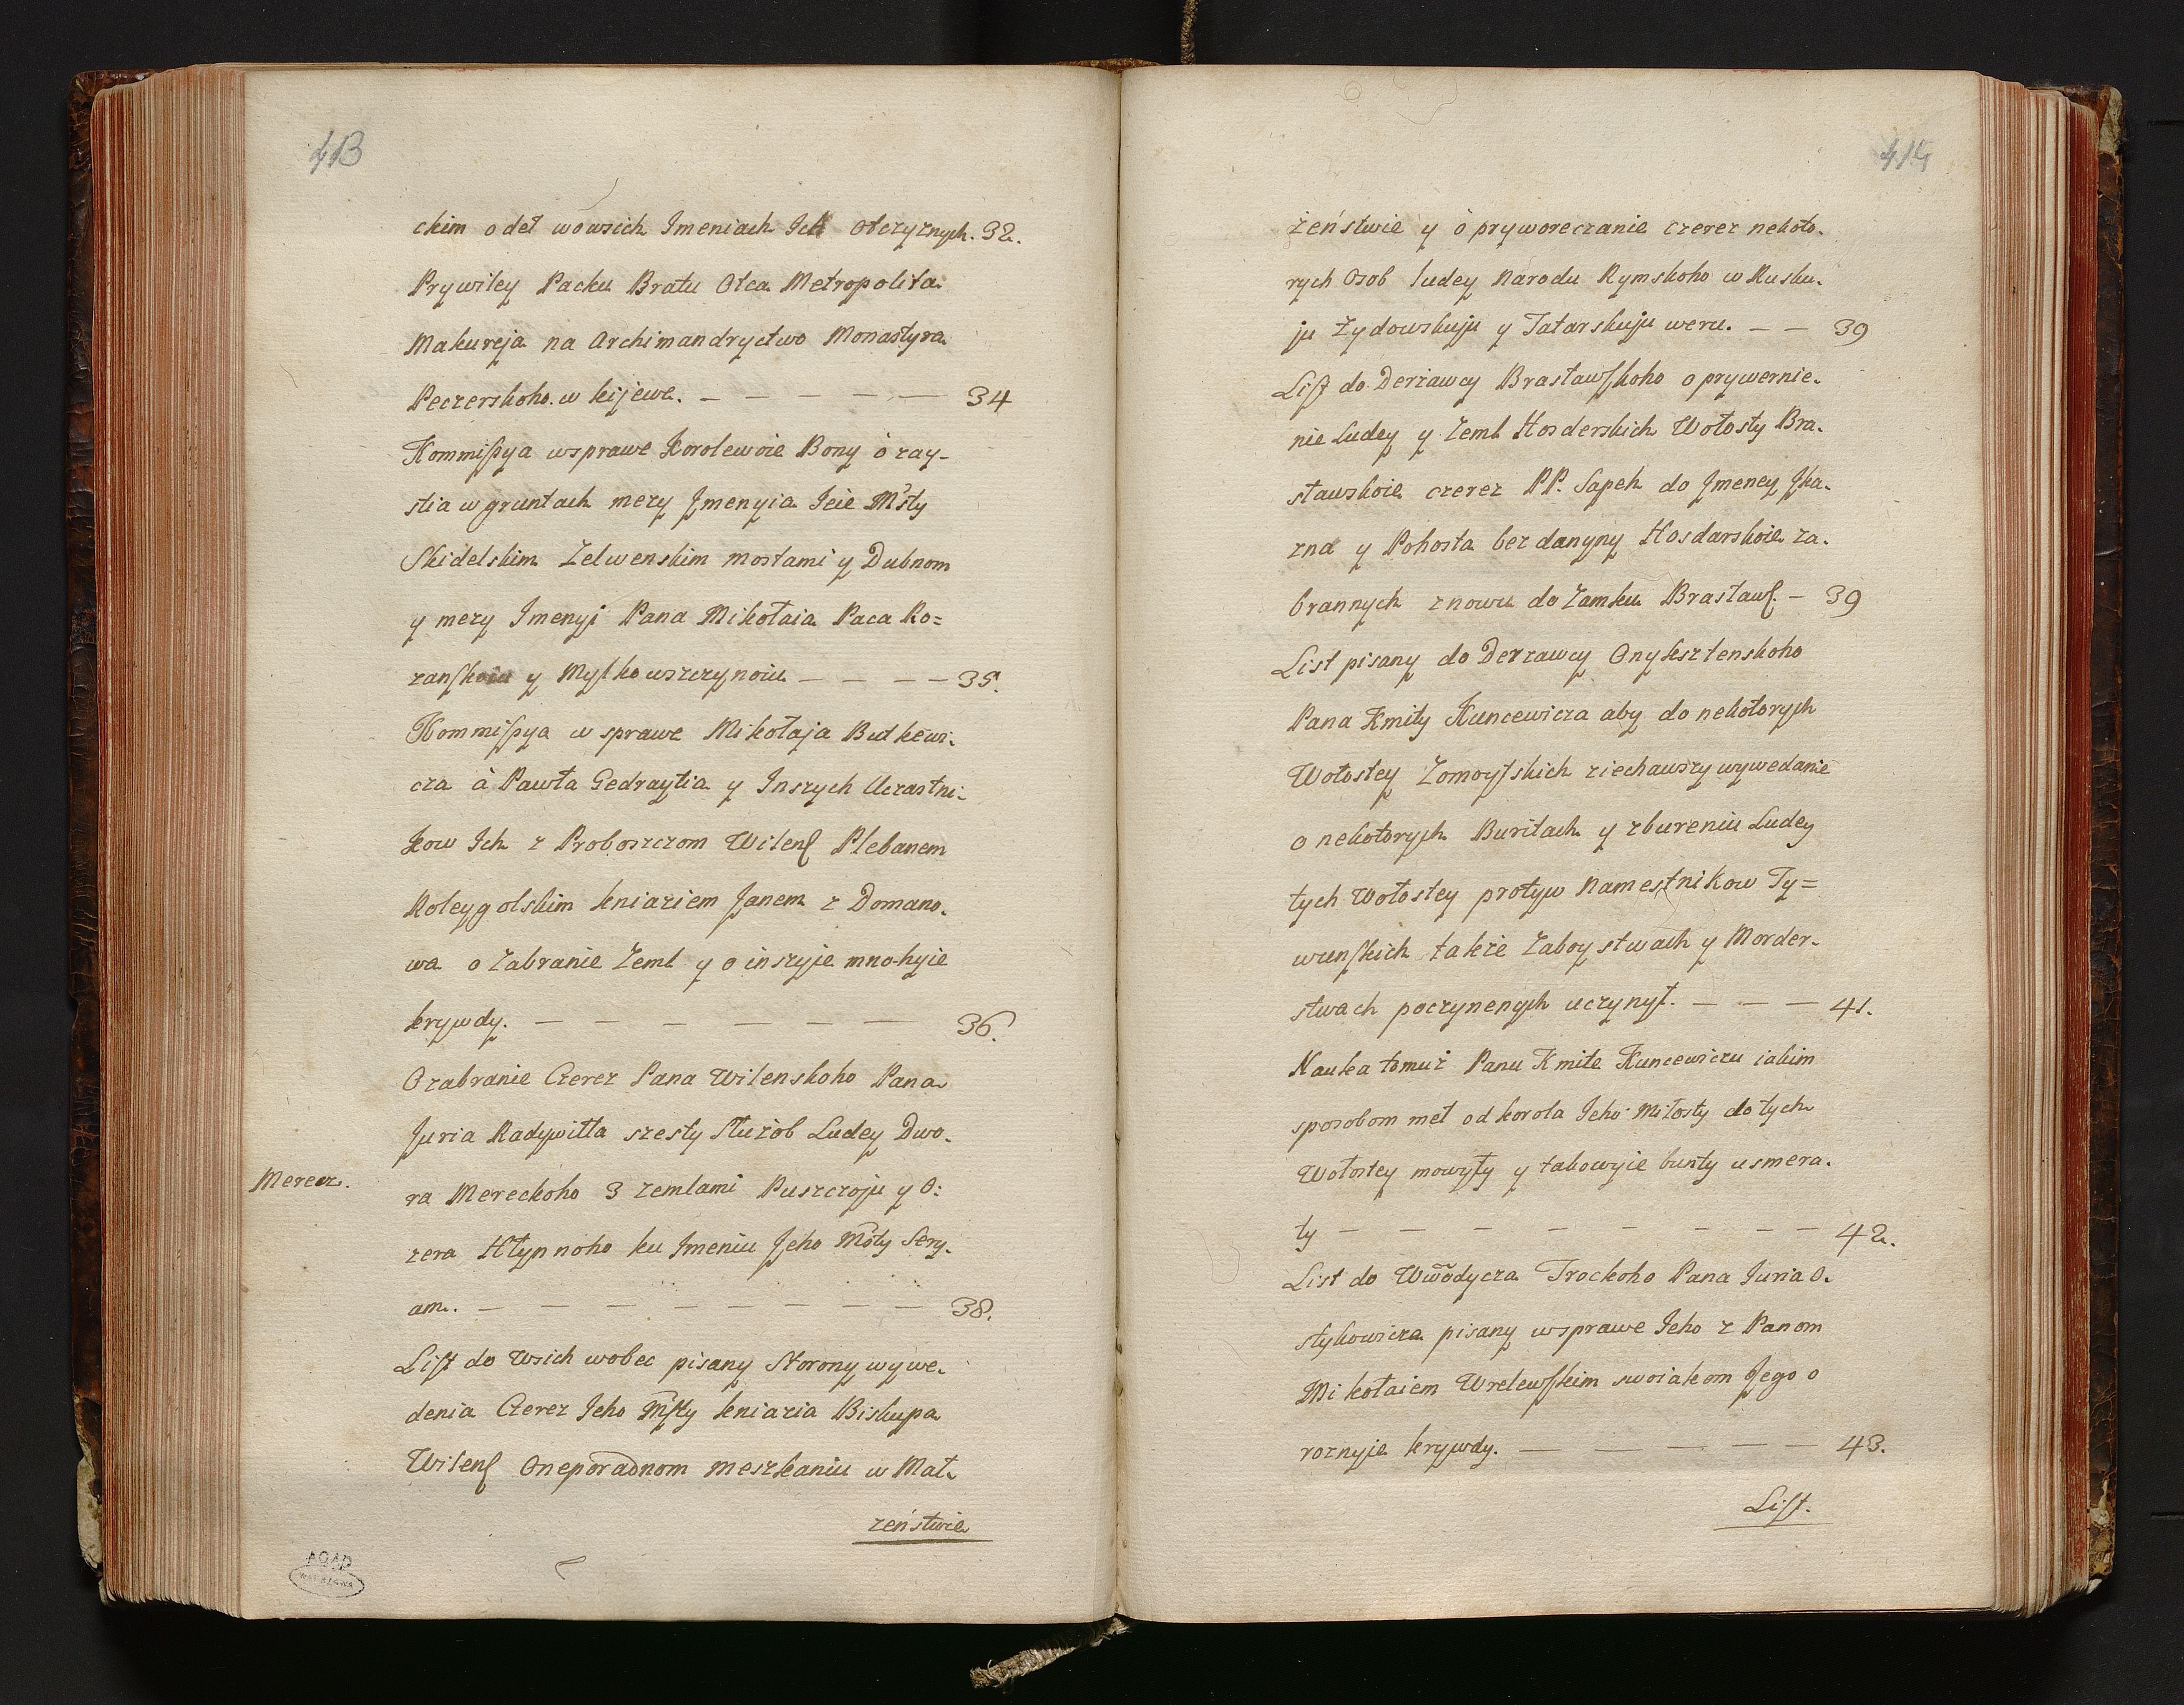 413
ckim o deł wowsich Imeniach Ich Otczyznych. 32.
Prywiley Packu Bratu Otca Metropolita
Makureja na Archimandryctwo Monastyra
Peczerskoho w kijewe. — — — — — 34
Kommissya wsprawe Korolewoie Bony ò zay-
stia w gruntach mezy Jmenyia Jeie Msty
Skidelskim Zelwenskim mostami y Dubnom
y mezy Imenyj Pana Mikołaia Paca Ro=
zanskoiu y Mysko wszczynoiu — — — — 35.
Kommissya w sprawe Mikołaja Butkewi-
cza à Pawła Gedraytia y Inszych Uczastni-
kow Ich z Proboszczom Wilens Plebanem
Roleygolskim kniaziem Janem z Domano-
wa o Zabranie Zeml y o inszyie mnohyie
krywdy. — — — — — — 36.
O zabranie Czerez Pana Wilenskoho Pana
Juria Radywiłła szesty Służob Ludey Dwo-
Merecz.
ra Mereckoho 3 zemlami Puszczoju y O:
zera Hłypnoho ku Jmeniu Jeho Msty Sery-
am. — — — — — — — 38.
List do Wsich wobec pisany Storony wywe-
denia Czerez Jeho Msty kniazia Biskupa
Wilens Oneporadnom meszkaniu w Mał-
żeństwie
414
żeństwie y ò pryworeczanie czerez nekoto-
rych Osob ludey Narodu Rymskoho w Rusku-
ju Żydowskuju y Tatarskuju weru. — — 39
List do Derżawcy Brasławskoho o prywernie-
nie Ludey y Zeml Hosderskich Wołosty Bra-
sławskoie czerez PP. Sapeh do Jmeney Jka-
zna y Pohosta bez danyny Hosdarskoie za-
brannych znowu do Zamku Brasławs. — 39
List pisany do Derzawcy Onyksztenskoho
Pana Kmity Kuncewicza aby do nekotorych
Wołostey Zomoytskich ziechawszy wywedanie
o nekotorych Buritach y zbureniu Ludey
tych Wołostey protyw Namestnikow Ty=
wunskich także Zaboystwach y Morder-
stwach poczynenych uczynył. — — — 41.
Nauka tomuż Panu Kmite Kuncewiczu iakim
sposobom meł od korola Jeho Miłosty do tych
Wołostey mowyty y takowyie bunty usmera-
ty — — — — — — — — 42.
List do Wwodycza Trockoho Pana Juria O-
stykowicza pisany wsprawe Jeho z Panom
Mikołaiem Wrelewskim swoiakom Jego o
roznyie krywdy. — — — — — 43.
List.
AGAD
WARSZAWA